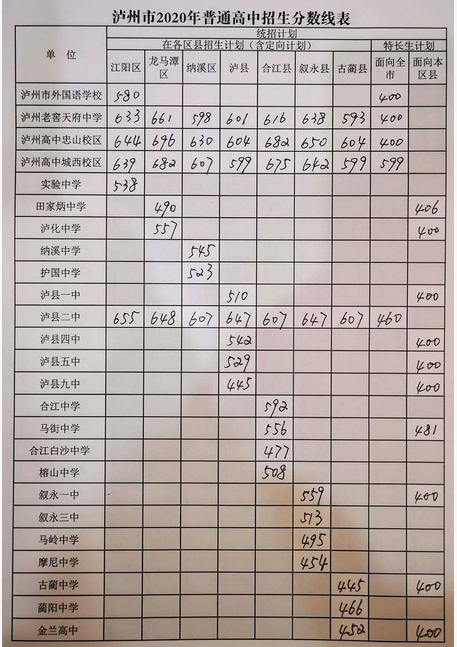 泸州市2020年普通高中招生分数线表
单 位 统招计划
在各区县招生计划（含定向计划） 特长生计划
江阳区 龙马潭区 纳溪区 泸县 合江县 叙永县 古蔺县 面向全市 面向本区县
泸州市外国语学校 580 400
泸州老窖天府中学 633 661 598 601 616 638 593 400
泸州高中忠山校区 644 696 630 604 682 650 604 400
泸州高中城西校区 639 682 607 599 675 642 599 599
实验中学 538
田家炳中学 490 406
泸化中学 557 400
纳溪中学 545
护国中学 523
泸县一中 510 400
泸县二中 655 648 607 647 607 647 607 460
泸县四中 542 400
泸县五中 529 400
泸县九中 445 400
合江中学 592
马街中学 556 481
合江白沙中学 477
榕山中学 508
叙永一中 559 400
叙永三中 513
马岭中学 495
摩尼中学 454
古蔺中学 445 400
蔺阳中学 466
金兰高中 452 400